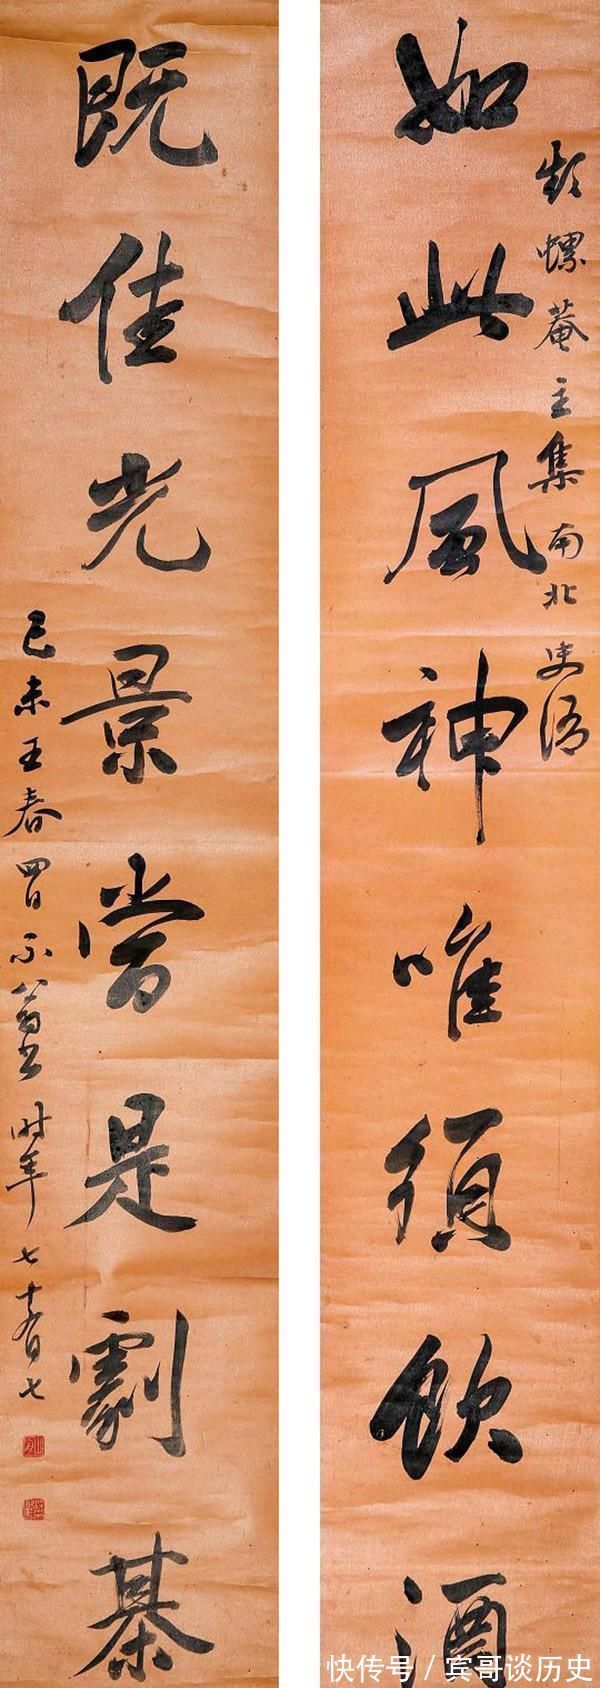 螺菴主集南北史語
如此風神唯須飲酒
既佳光景當是劇棊
己未王春四日不翁書時年七十有七
快传号/宾哥谈历史